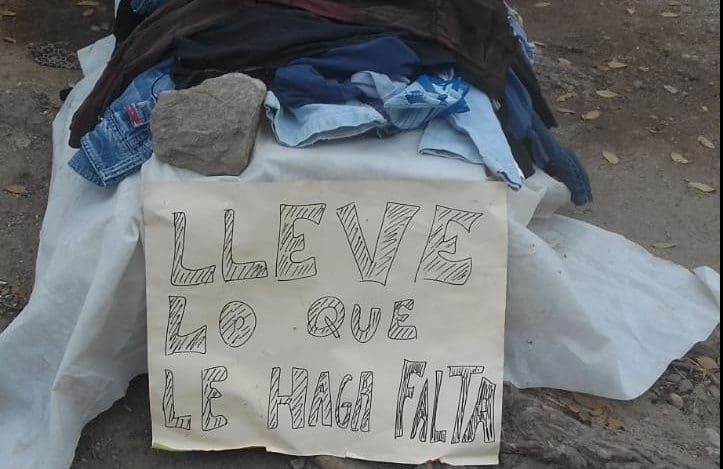 LLEVE
LO QUE
LE HAGA FALTA